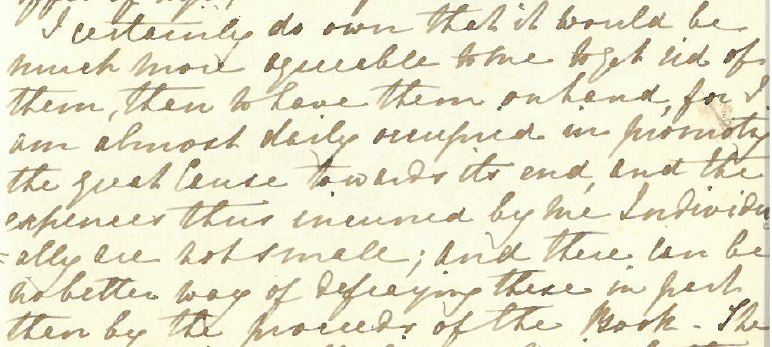 I certainly do own that it would be
much more agreeable to me to get rid of
them, then to have them on hand, for I
am almost daily occupied in promoting
the great Cause towards its end, and the
expences thus incurred by me Individu
-ally are not small; and there can be
no better way of defraying these in part
then by the proceeds of the Book - The